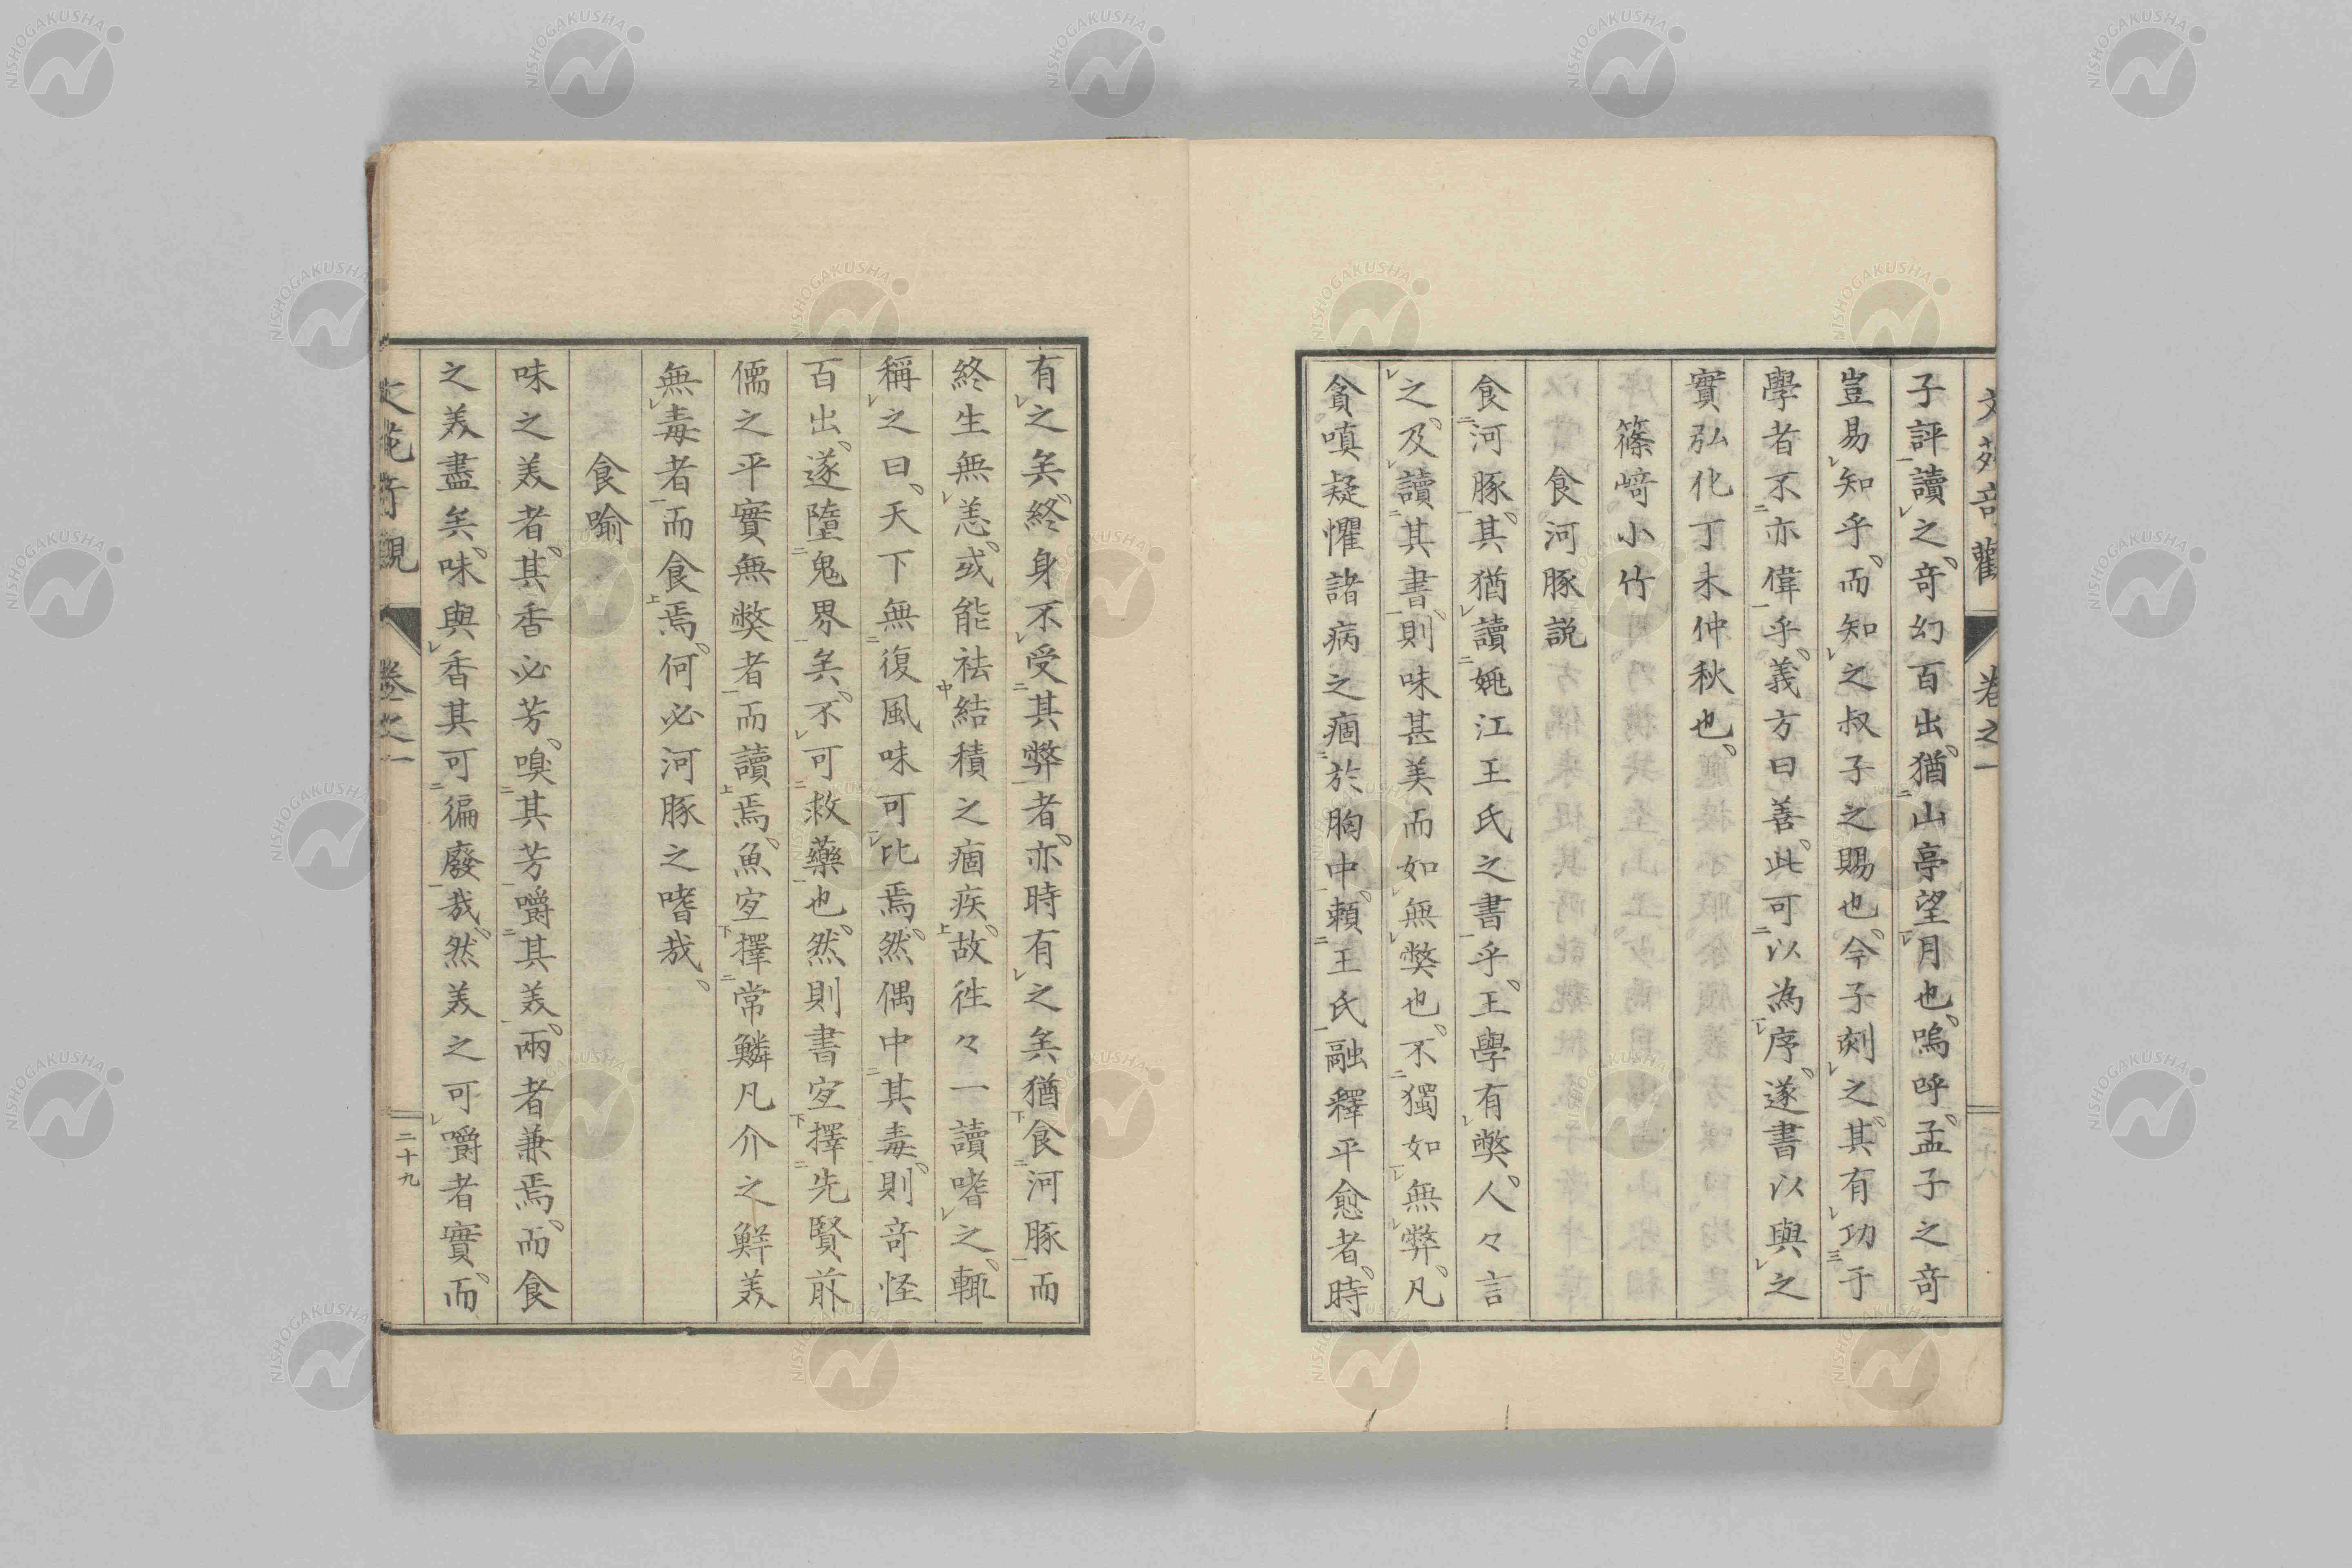 文苑奇觀 卷之一
子評讀之、奇幻百出、猶山亭望月也、嗚呼、孟子之奇
豈易知乎、而知之叔子之賜也、今子刻之、其有功于
學者不亦偉乎、義方曰善、此可以為序、遂書以與之
實弘化丁未仲秋也、
篠﨑小竹
食河豚説
食河豚、其猶讀姚江王氏之書乎、王學有獘、人々言
之、及讀其書、則味甚美而如無獘也、不獨如無弊、凡
貪嗔疑懼諸病之痼於胸中、賴王氏融釋平愈者、時
有之矣、終身不受其弊者、亦時有之矣猶食河豚而
終生無恙、或能祛結積之痼疾、故徃々一讀嗜之、輒
稱之曰、天下無復風味可比焉、然偶中其毒、則奇怪
百出、遂墮鬼界矣、不可救藥也、然則書宜擇先賢前
儒之平實無獘者而讀焉、魚宜擇常鱗凡介之鮮美
無毒者而食焉、何必河豚之嗜哉、
食喻
味之美者、其香必芳、嗅其芳嚼其美、兩者兼焉、而食
之美盡矣、味與香其可偏廢哉、然美之可嚼者實、而
文苑奇觀 卷之一 二十九
NISHOGAKUSHA